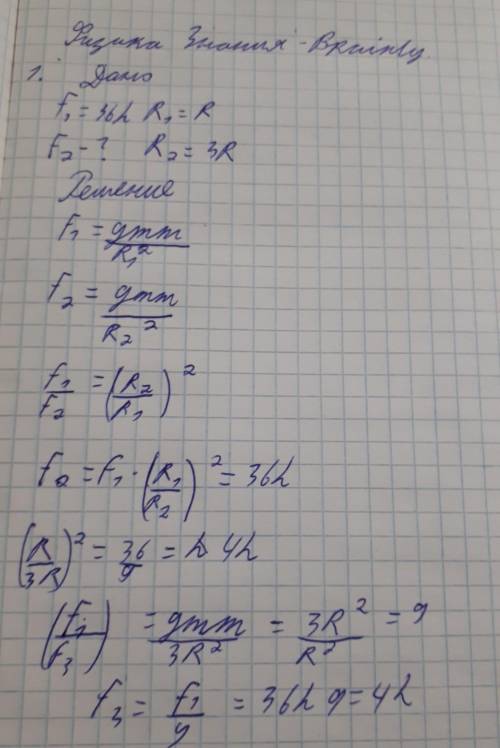 Физика Знания - Brainly
1. Дано
F₁ = 36h R₁ = R
F₂ - ? R₂ = 3R
Решение
F₁ = gmm/R₁²
F₂ = gmm/R₂²
F₁/F₂ = (R₂/R₁)²
F₂ = F₁ · (R₁/R₂)² = 36h
(R/3R)² = 36/9 = 4h
(F₁/F₃) = gmm/3R² = 3R²/R² = 9
F₃ = F₁/9 = 36h 9 = 4h